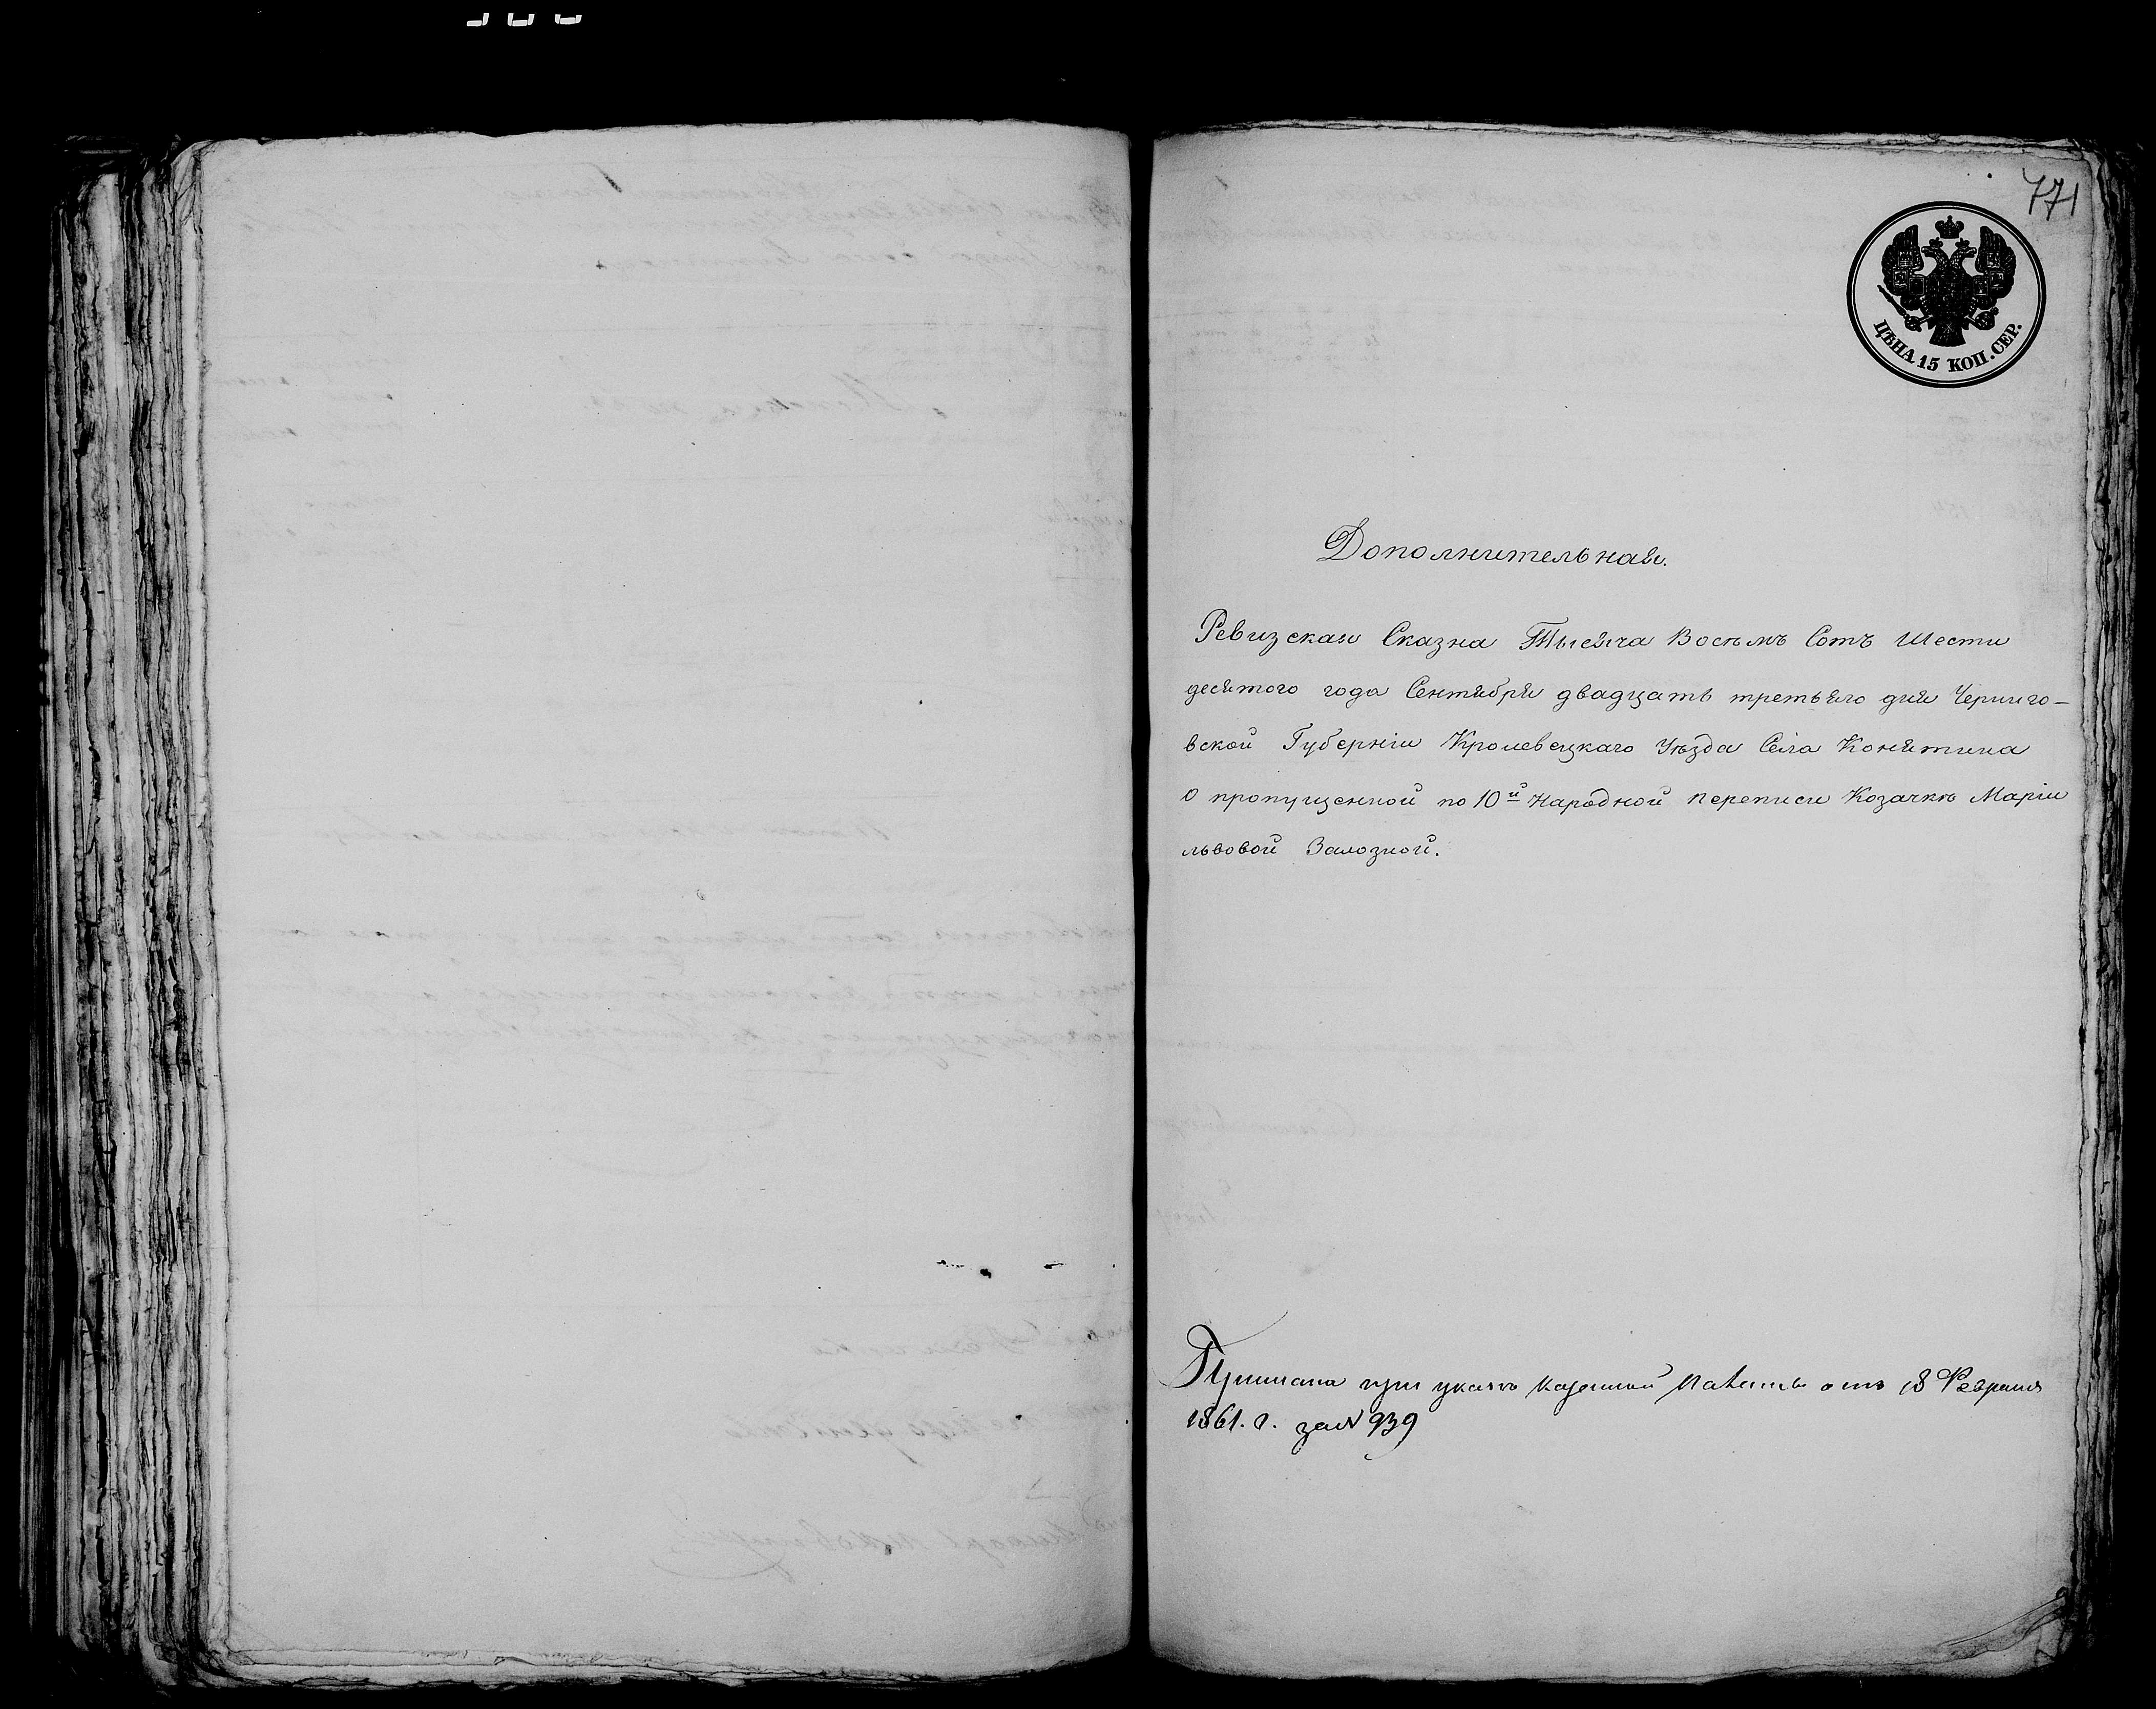 771
ЦѢНА 15 КОП. СЕР.
Дополнительная.
Ревизская Сказка Тысяча Восемь Сотъ Шести
десятого года Сентября двадцать третьяго дня Черниго-
вской Губерніи Кролевецкаго Уѣзда Села Конятина
О пропущенной по 10й Народной переписи Козачкѣ Маріи
львовой Залозной.
при указѣ Казенной Палаты отъ 18 Февраля
1861. г. за N 939